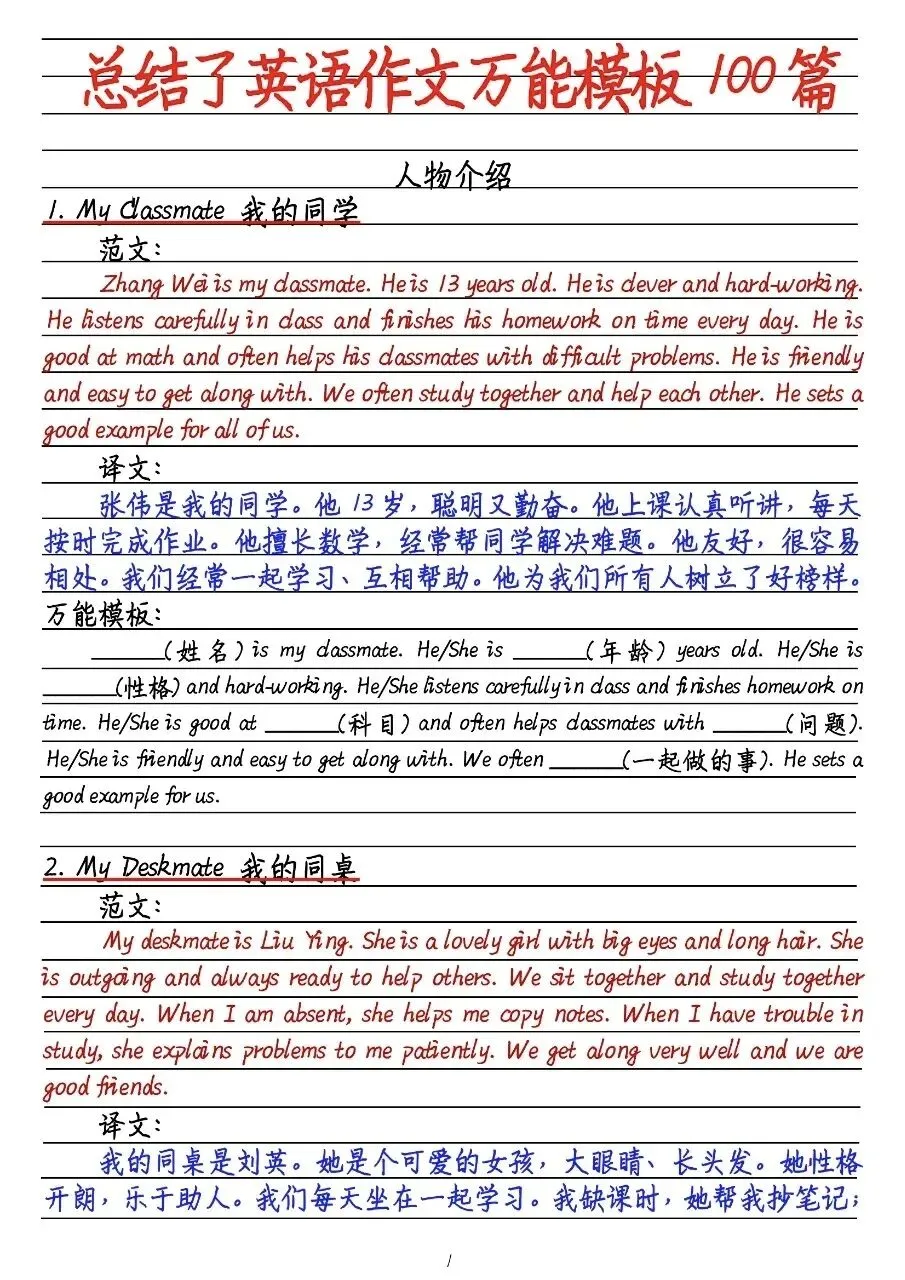 总结了英语作文万能模板100篇
人物介绍
1. My Classmate 我的同学
范文：
Zhang Wei is my classmate. He is 13 years old. He is clever and hard-working.
He listens carefully in class and finishes his homework on time every day. He is
good at math and often helps his classmates with difficult problems. He is friendly
and easy to get along with. We often study together and help each other. He sets a
good example for all of us.
译文：
张伟是我的同学。他13岁，聪明又勤奋。他上课认真听讲，每天
按时完成作业。他擅长数学，经常帮同学解决难题。他友好，很容易
相处。我们经常一起学习、互相帮助。他为我们所有人树立了好榜样。
万能模板：
______(姓名) is my classmate. He/She is ______(年龄) years old. He/She is
______(性格) and hard-working. He/She listens carefully in class and finishes homework on
time. He/She is good at ______(科目) and often helps classmates with ______(问题).
He/She is friendly and easy to get along with. We often ______(一起做的事). He sets a
good example for us.
2. My Deskmate 我的同桌
范文：
My deskmate is Liu Ying. She is a lovely girl with big eyes and long hair. She
is outgoing and always ready to help others. We sit together and study together
every day. When I am absent, she helps me copy notes. When I have trouble in
study, she explains problems to me patiently. We get along very well and we are
good friends.
译文：
我的同桌是刘英。她是个可爱的女孩，大眼睛、长头发。她性格
开朗，乐于助人。我们每天坐在一起学习。我缺课时，她帮我抄笔记；
1